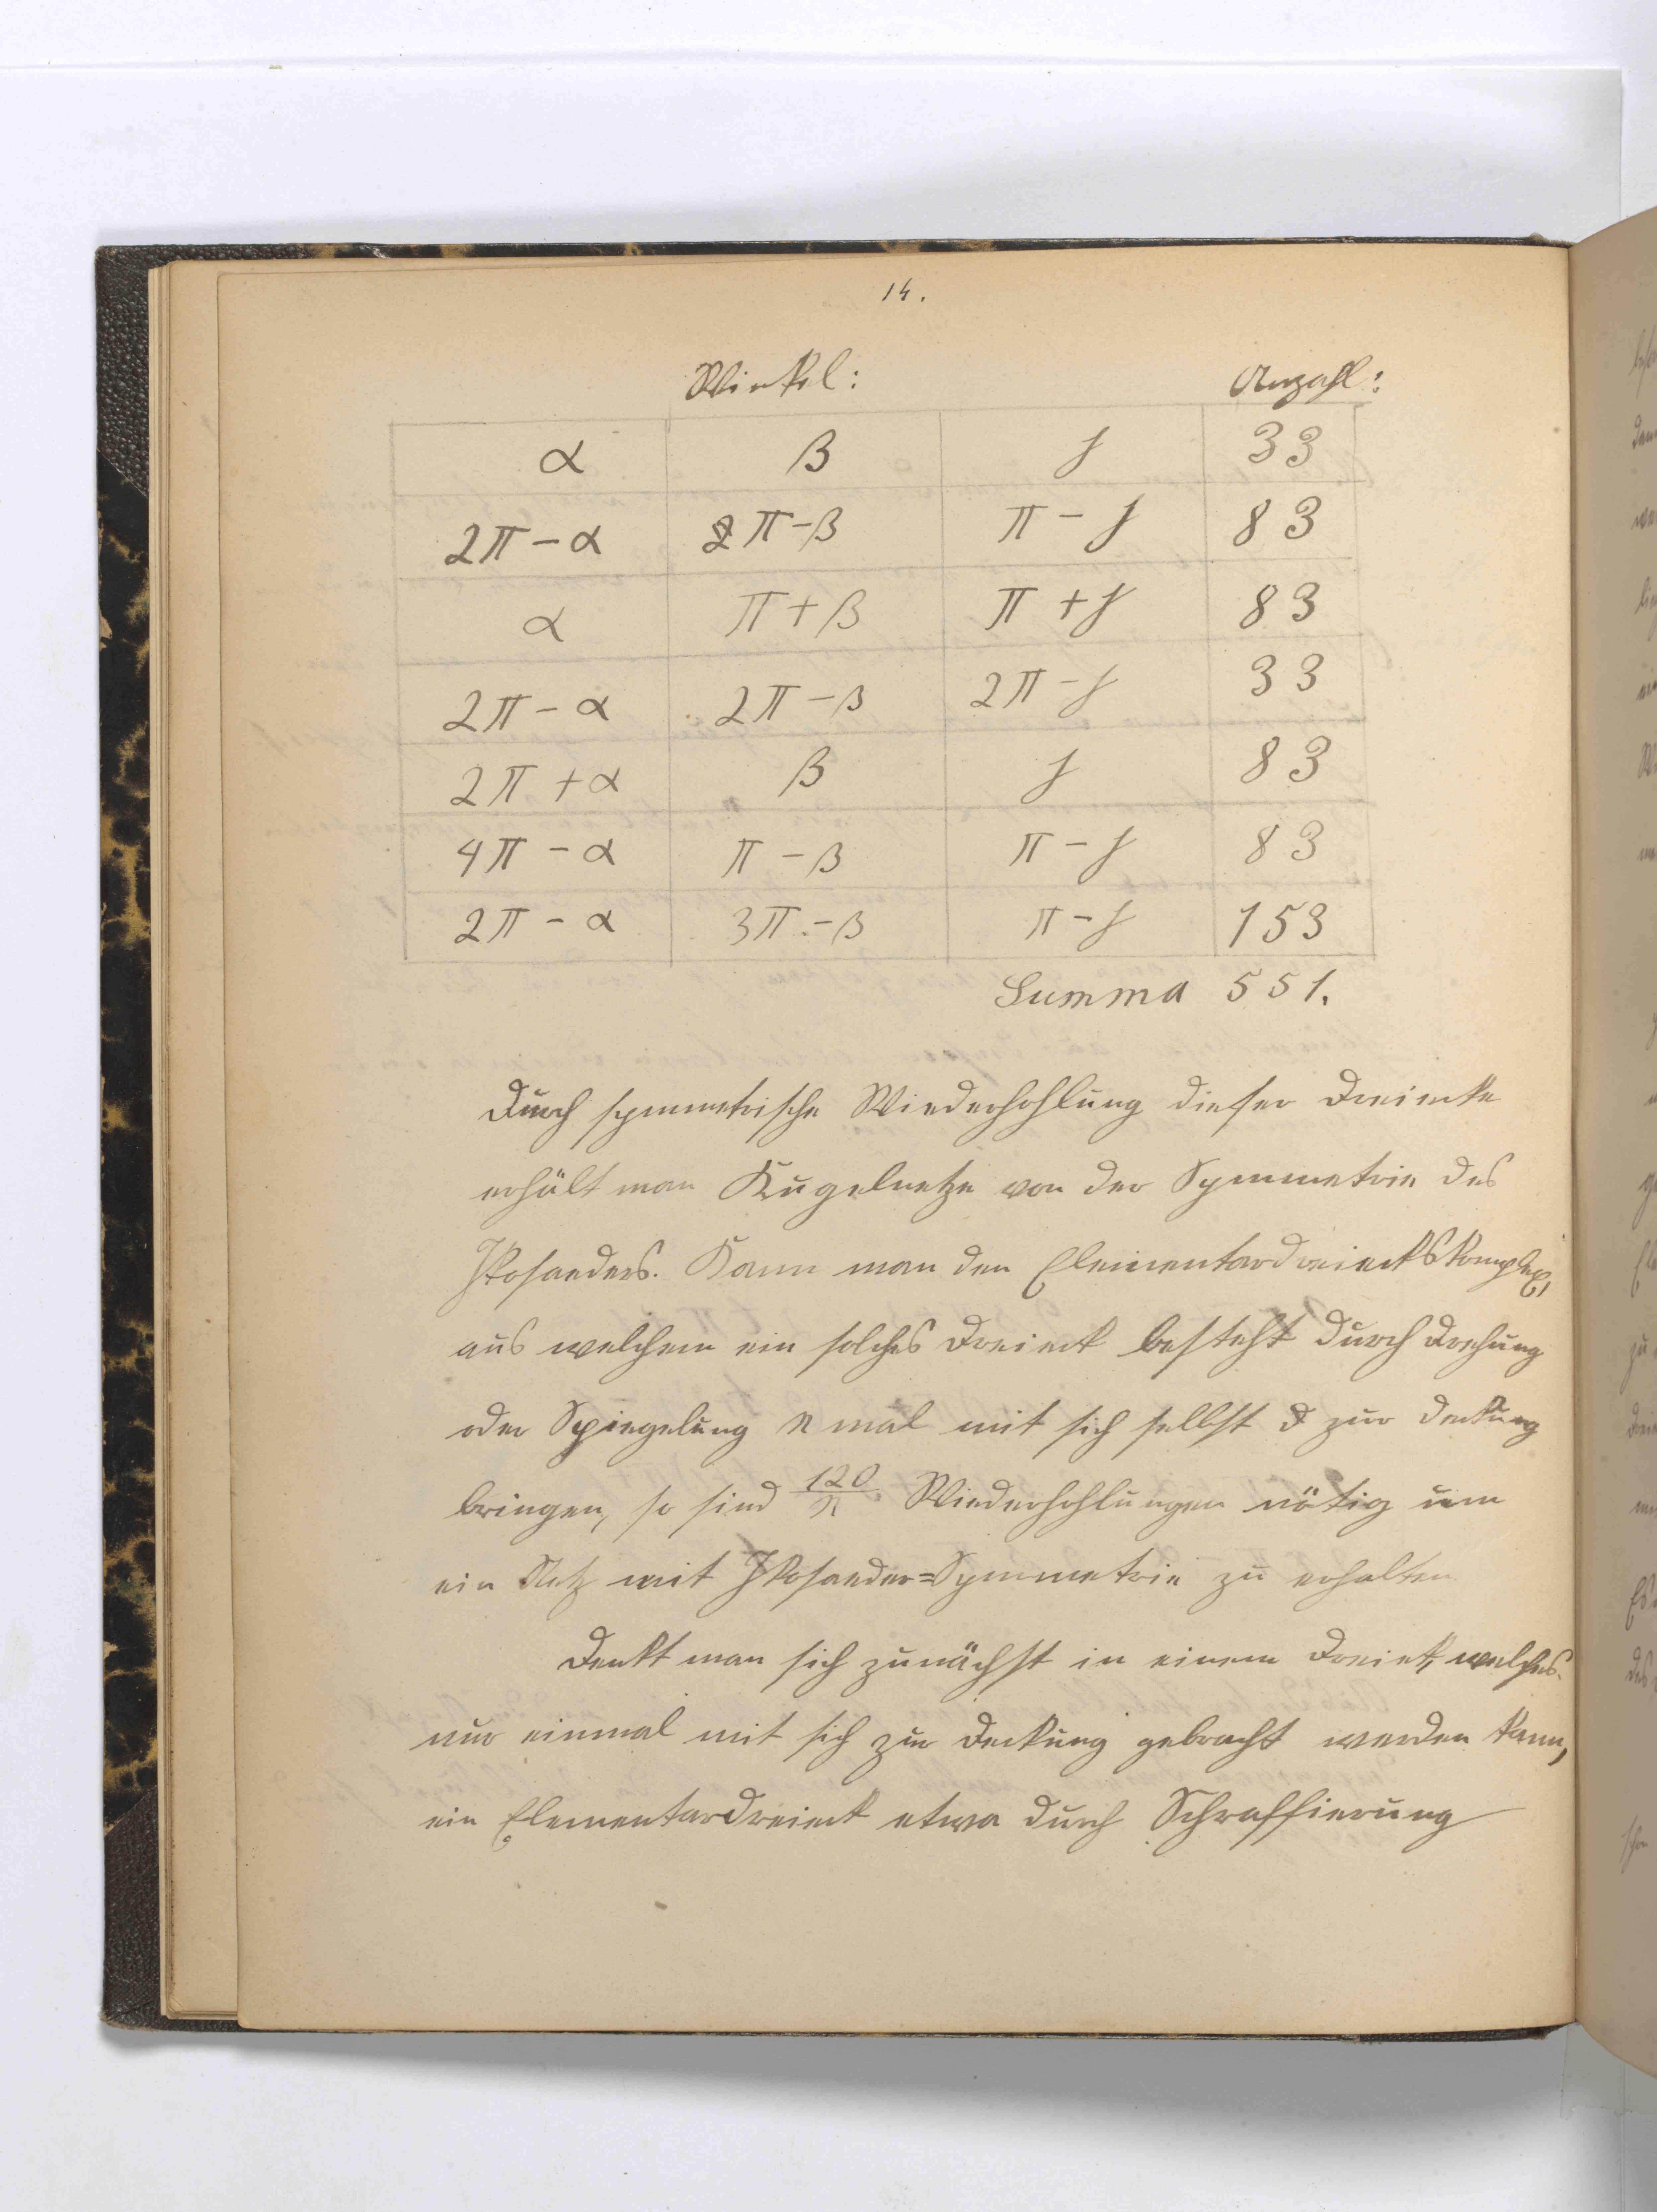 14.
Winkel: Anzahl:
α β γ 33
2π - α 2π - β π - γ 83
α π + β π + γ 83
2π - α 2π - β 2π - γ 33
2π + α β γ 83
4π - α π - β π - γ 83
2π - α 3π - β π - γ 153
Summa 551.
Durch symmetrische Wiederhohlung dieser Dreiecke
erhält man Kugelnetze von der Symmetrie des
Ikosaeders. Kann man den Elementardreieckskomplex,
aus welchem ein solches Dreieck besteht durch Drehung
oder Spiegelung n mal mit sich selbst zur Deckung
bringen, so sind 120/n Wiederhohlungen nötig um
ein Netz mit Ikosaeder=Symmetrie zu erhalten
Denkt man sich zunächst in einem Dreieck, welches
nur einmal mit sich zur Deckung gebracht werden kann,
ein Elementardreieck etwa durch Schraffierung